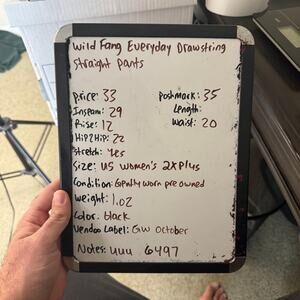 Wild Fang Everyday Drawstring
Straight Pants
Price: 33
Poshmark: 35
Inseam: 29
Length:
Rise: 12
Waist: 20
Hip2Hip: 22
Stretch: Yes
Size: US Women's 2X Plus
Condition: Gently worn pre owned
Weight: 1.02
Color: black
Vendoo Label: GW October
Notes: uuu 6497